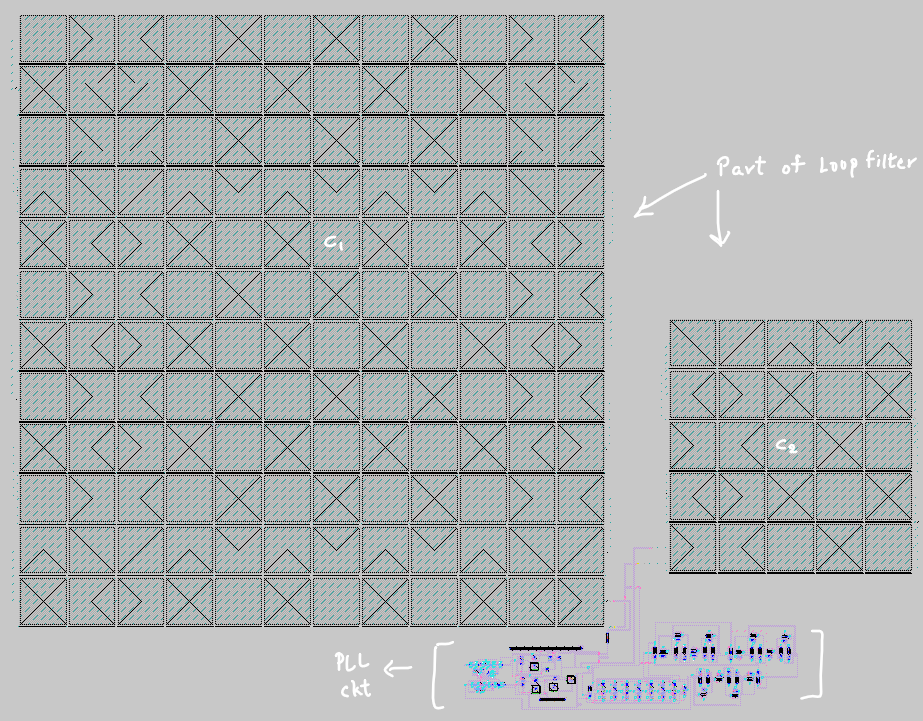 Part of Loop filter
C1
C2
PLL
ckt